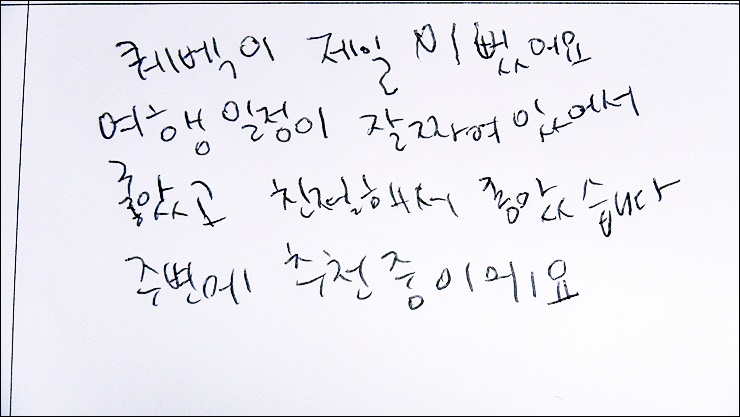 퀘벡이 제일 이뻤어요
여행 일정이 잘 짜여있어서
좋았고 친절해서 좋았습니다
주변에 추천중이에요